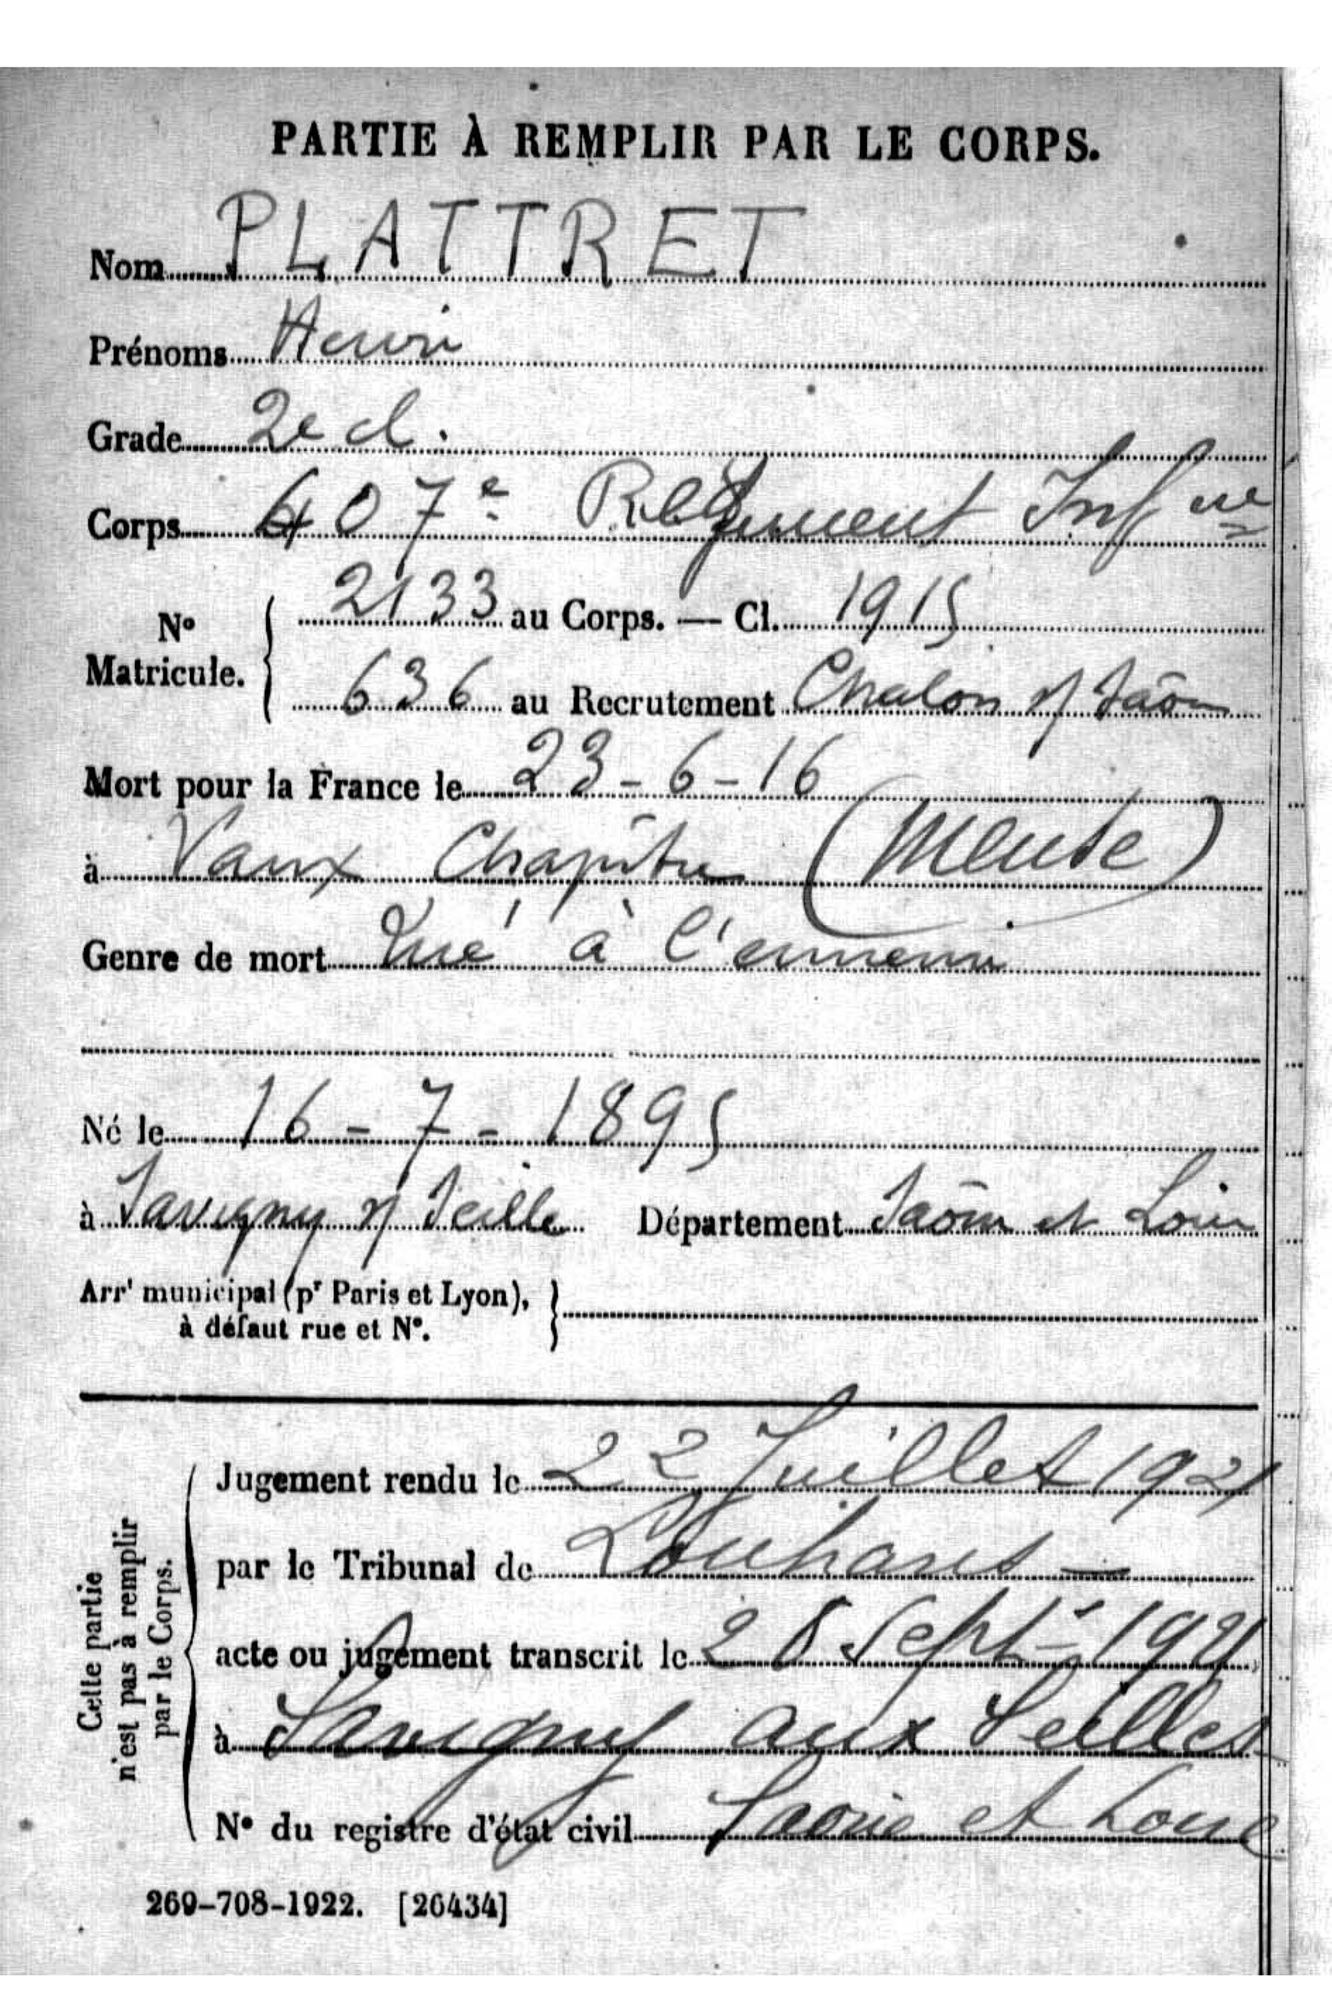 PARTIE À REMPLIR PAR LE CORPS.
Nom PLATTRET
Prénoms Henri
Grade 2e cl.
Corps 407e Régiment Infrie
No Matricule. 2133 au Corps. — Cl. 1915
636 au Recrutement Chalon s/ Saône
Mort pour la France le 23-6-16
à Vaux Chapitre (Meuse)
Genre de mort Tué à l'ennemi
Né le 16-7-1895
à Savigny s/ Seille Département Saône et Loire
Arrt municipal (pr Paris et Lyon),
à défaut rue et No.
Cette partie
n'est pas à remplir
par le Corps.
Jugement rendu le 22 Juillet 1921
par le Tribunal de Louhans —
acte ou jugement transcrit le Sept 1921
à Savigny aux Seilles
No du registre d'état civil Saone et Loire
269-708-1922. [26434]